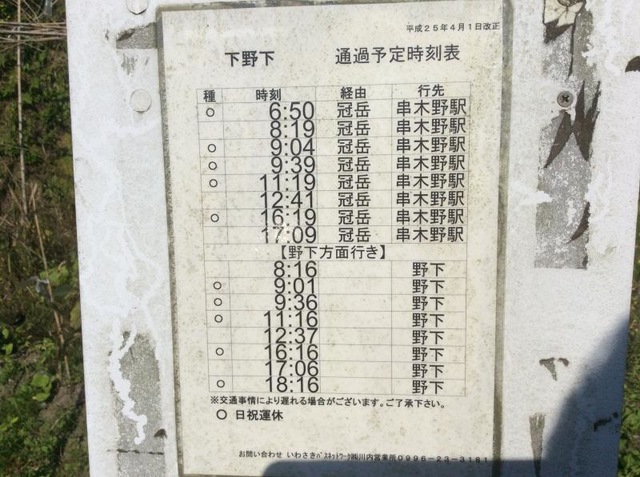 平成25年4月1日改正
下野下 通過予定時刻表
種 時刻 経由 行先
○ 6:50 冠岳 串木野駅
8:19 冠岳 串木野駅
○ 9:04 冠岳 串木野駅
○ 9:39 冠岳 串木野駅
○ 11:19 冠岳 串木野駅
12:41 冠岳 串木野駅
○ 16:19 冠岳 串木野駅
17:09 冠岳 串木野駅
【野下方面行き】
8:16 野下
○ 9:01 野下
○ 9:36 野下
○ 11:16 野下
12:37 野下
○ 16:16 野下
17:06 野下
○ 18:16 野下
※交通事情により遅れる場合がございます。ご了承下さい。
○ 日祝運休
お問い合わせ いわさきバスネットワーク㈱川内営業所0996-23-3181